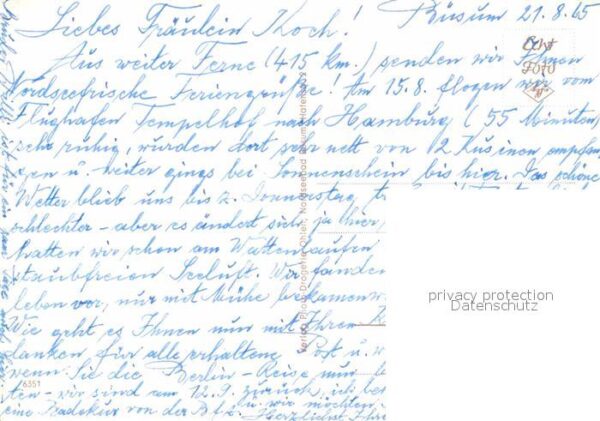 Liebes Fräulein Koch! Büsum 21.8.65
Aus weiter Ferne (415 km.) senden wir Ihnen
Nordseefrische Feriengrüße! Am 15.8. flogen wir vom
Flughafen Tempelhof nach Hamburg (55 Minuten)
sehr ruhig, wurden dort sehr nett von 2 Kusinen empfan
gen u. weiter gings bei Sonnenschein bis hier. Das schöne
Wetter blieb uns bis z. Donnerstag,
schlechter - aber es ändert sich ja hier,
hatten wir schon am Wattenlaufen
staubfreien Seeluft. Wir fanden
leben vor, nur mit Mühe bekamen
Wie geht es Ihnen nun mit Ihren
danken für alle erhaltene Post u.
wenn Sie die Berlin-Reise nun
ten - wir sind am 12.9. zurück, ich
eine Badekur von der Bfa. u. wir möchten
Herzlichst Ihre
Echt
Foto
6351
privacy protection
Datenschutz